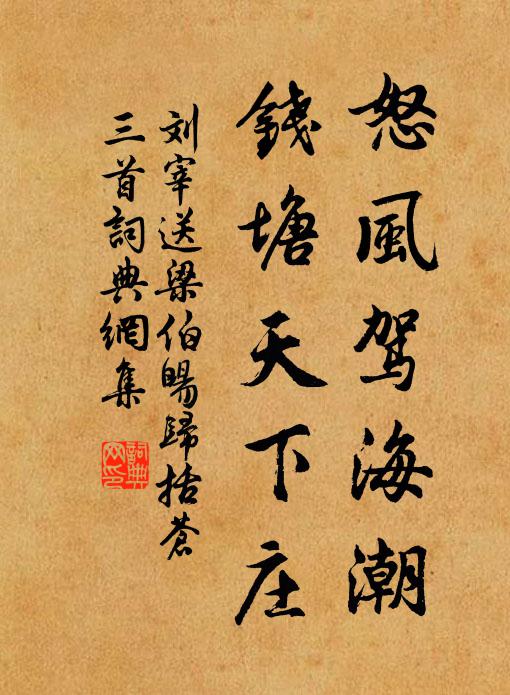 怒風駕海潮
錢塘天下庄
刘宰送梁伯暘歸括蒼
三首詞典網集
詞典网印